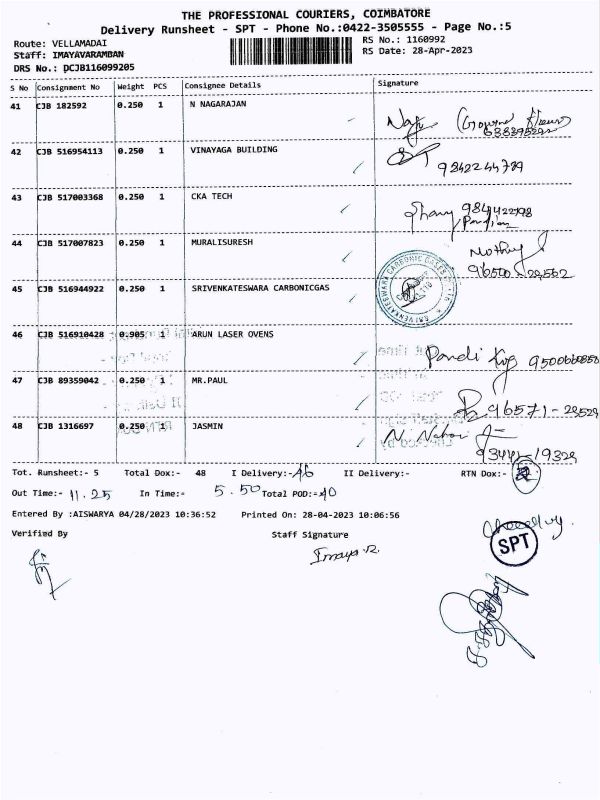 THE PROFESSIONAL COURIERS, COIMBATORE
Delivery Runsheet - SPT - Phone No.:0422-3505555 - Page No.:5
Route: VELLAMADAI
RS No.: 1160992
Staff: IMAYAVARAMBAN
RS Date: 28-Apr-2023
DRS No.: DCJB116099205
S No Consignment No Weight PCS Consignee Details Signature
41 CJB 182592 0.250 1 N NAGARAJAN
42 CJB 516954113 0.250 1 VINAYAGA BUILDING
9842244789
43 CJB 517003368 0.250 1 CKA TECH
44 CJB 517007823 0.250 1 MURALISURESH
45 CJB 516944922 0.250 1 SRIVENKATESWARA CARBONICGAS
SRIVENKATESWARA CARBONIC GASES
46 CJB 516910428 0.905 1 ARUN LASER OVENS
Pandi
47 CJB 89359042 0.250 1 MR.PAUL
96571-28529
48 CJB 1316697 0.250 1 JASMIN
93441-19329
Tot. Runsheet:- 5 Total Dox:- 48 I Delivery:-46 II Delivery:- RTN Dox:-
Out Time:- 11.25 In Time:- 5.50 Total POD:-40
Entered By :AISWARYA 04/28/2023 10:36:52 Printed On: 28-04-2023 10:06:56
Verified By Staff Signature
SPT
Imaya.R.